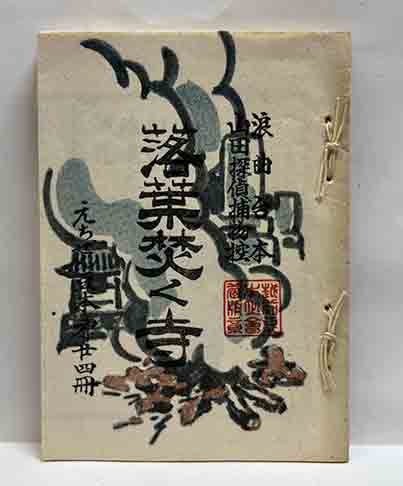 浪曲台本
山田探偵捕物控
落葉焚く寺
えちご豆本第廿四冊